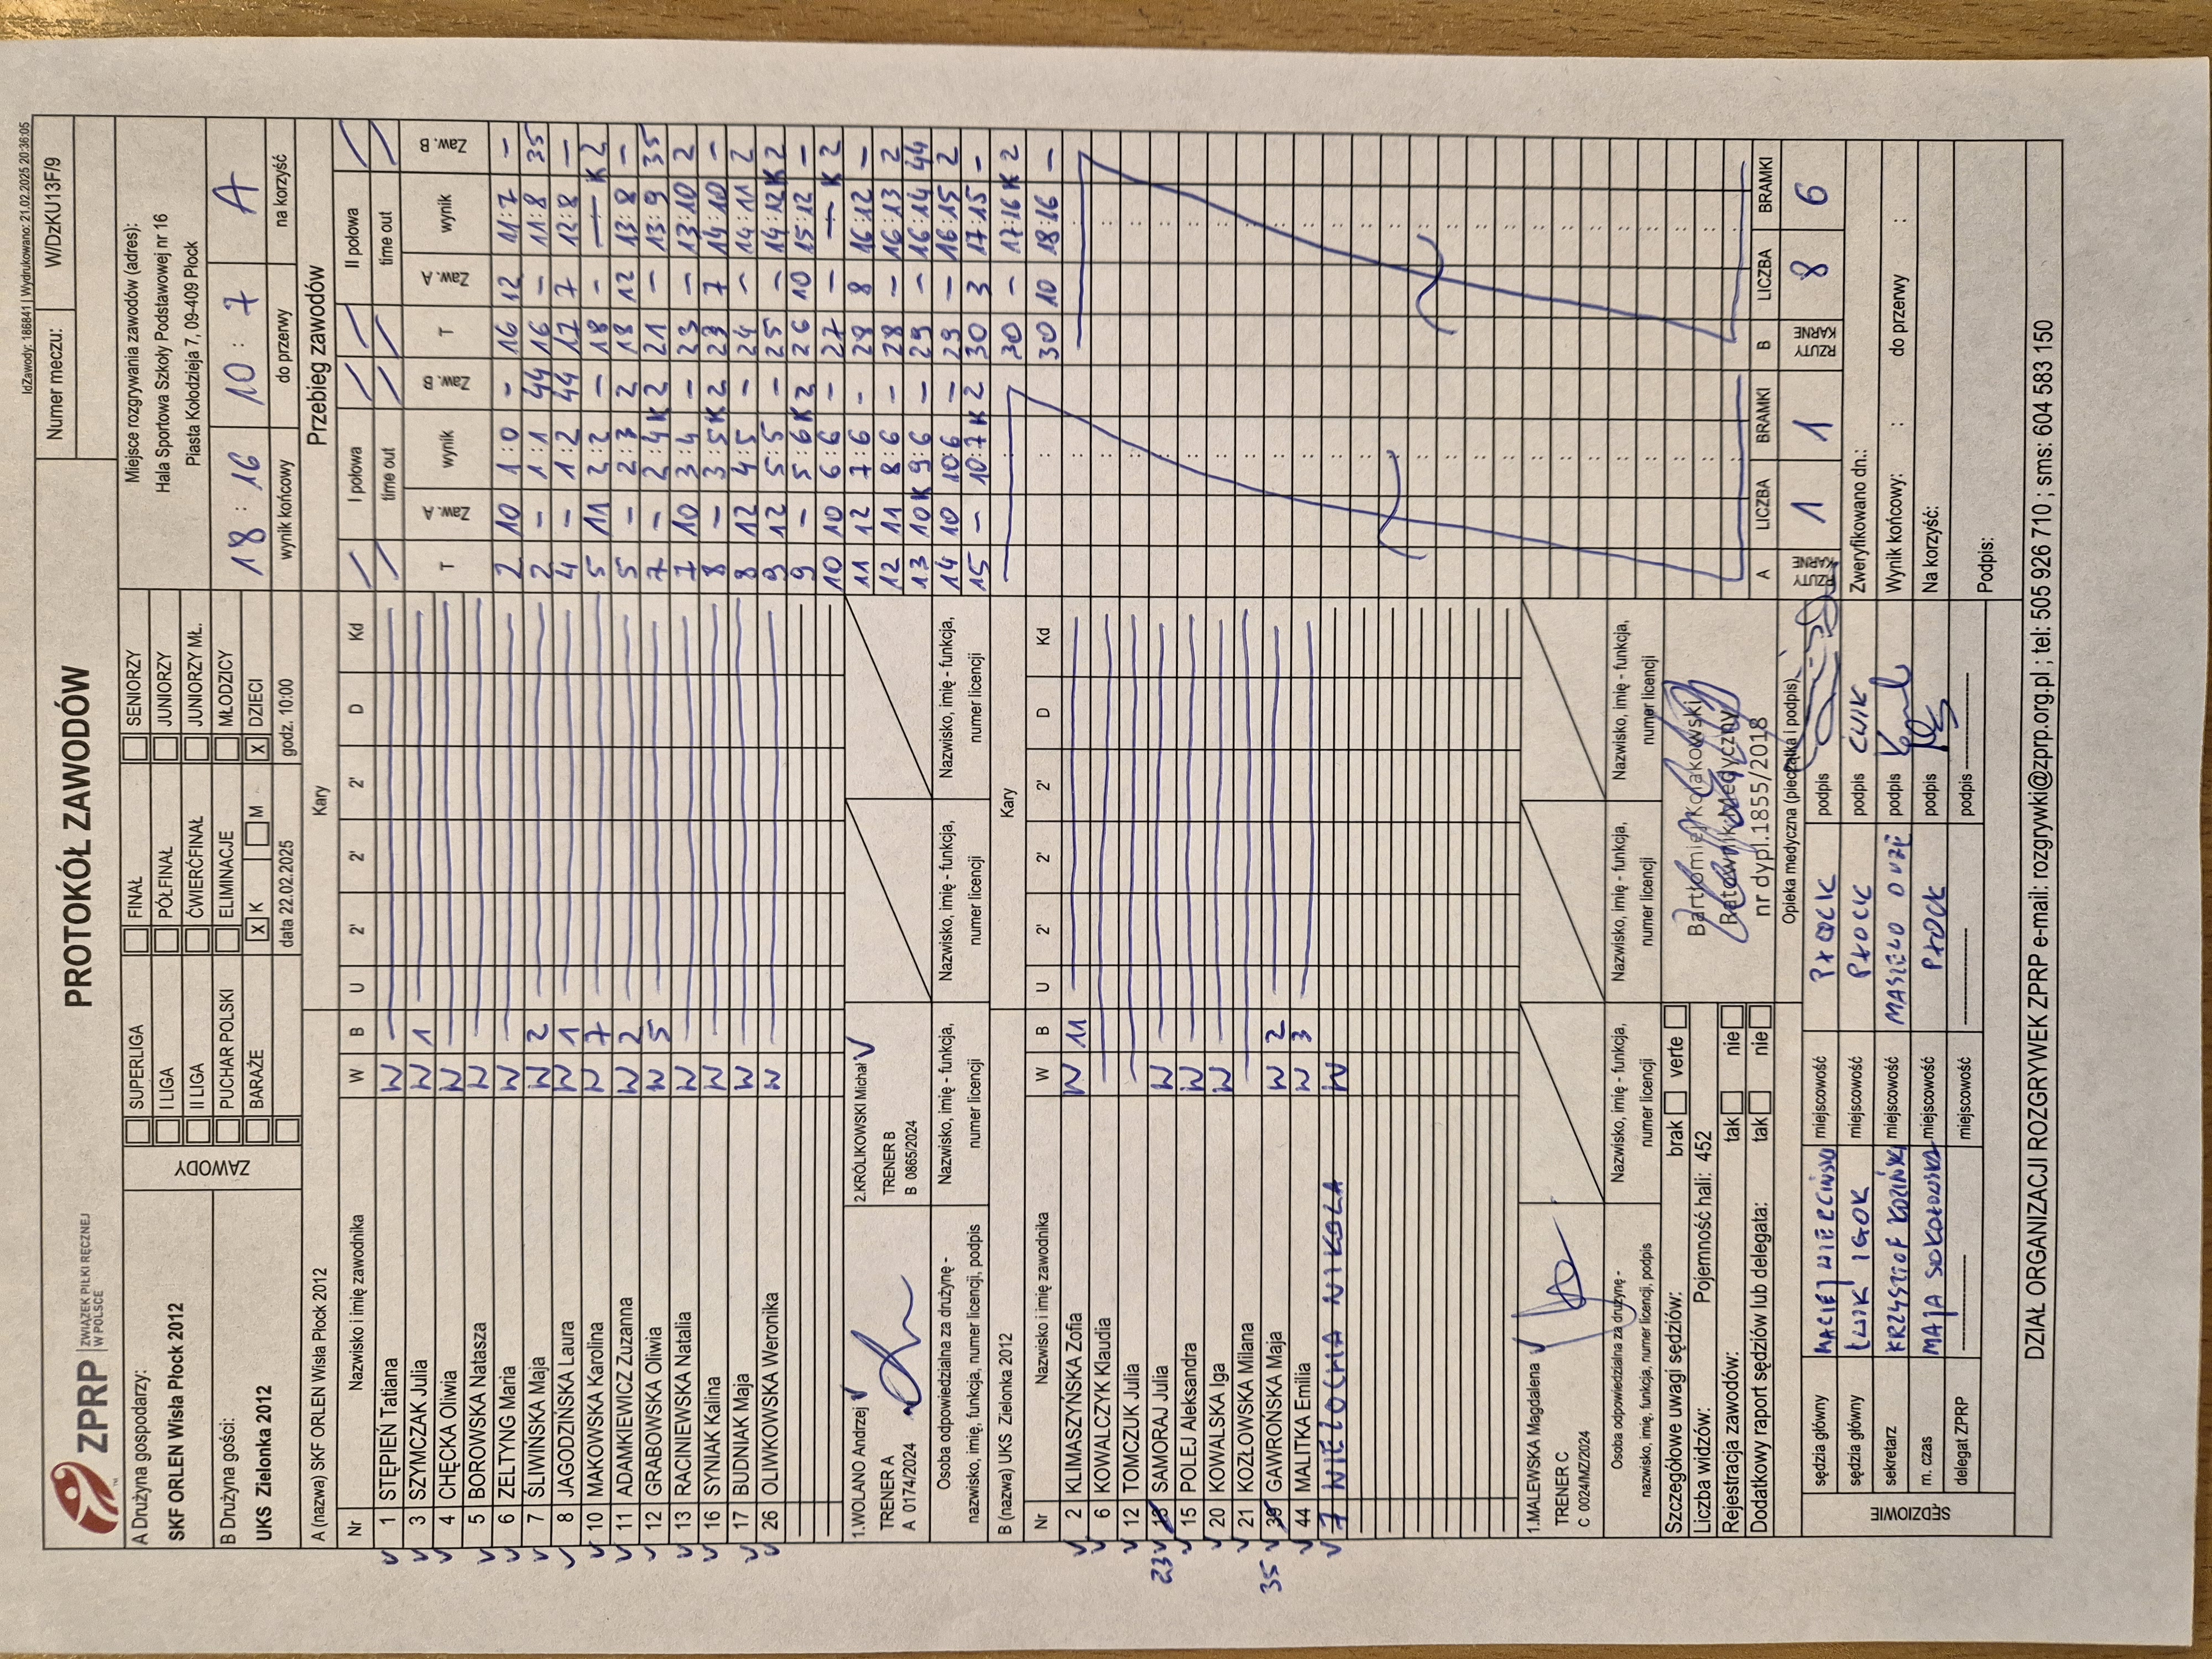 IdZawody: 186841 | Wydrukowano: 21.02.2025 20:36:05
ZPRP ZWIĄZEK PIŁKI RĘCZNEJ W POLSCE
PROTOKÓŁ ZAWODÓW
Numer meczu: W/DzKU13F/9
A Drużyna gospodarzy:
SKF ORLEN Wisła Płock 2012
B Drużyna gości:
UKS Zielonka 2012
ZAWODY
SUPERLIGA FINAŁ SENIORZY
I LIGA PÓŁFINAŁ JUNIORZY
II LIGA ĆWIERĆFINAŁ JUNIORZY MŁ.
PUCHAR POLSKI ELIMINACJE MŁODZICY
BARAŻE X K M X DZIECI
data 22.02.2025 godz. 10:00
Miejsce rozgrywania zawodów (adres):
Hala Sportowa Szkoły Podstawowej nr 16
Piasta Kołodzieja 7, 09-409 Płock
18 : 16 10 : 7 A
wynik końcowy do przerwy na korzyść
A (nazwa) SKF ORLEN Wisła Płock 2012 Kary
Nr Nazwisko i imię zawodnika W B U 2' 2' 2' D Kd
1 STĘPIEŃ Tatiana W
3 SZYMCZAK Julia W 1
4 CHĘCKA Oliwia W
5 BOROWSKA Natasza W
6 ZELTYNG Maria W
7 ŚLIWIŃSKA Maja W 2
8 JAGODZIŃSKA Laura W 1
10 MAKOWSKA Karolina W 7
11 ADAMKIEWICZ Zuzanna W 2
12 GRABOWSKA Oliwia W 5
13 RACINIEWSKA Natalia W
16 SYNIAK Kalina W
17 BUDNIAK Maja W
26 OLIWKOWSKA Weronika W
1.WOLANO Andrzej
TRENER A
A 0174/2024
2.KRÓLIKOWSKI Michał
TRENER B
B 0865/2024
Osoba odpowiedzialna za drużynę -
nazwisko, imię, funkcja, numer licencji, podpis
Nazwisko, imię - funkcja,
numer licencji
Nazwisko, imię - funkcja,
numer licencji
Nazwisko, imię - funkcja,
numer licencji
Nazwisko, imię - funkcja,
numer licencji
B (nazwa) UKS Zielonka 2012 Kary
Nr Nazwisko i imię zawodnika W B U 2' 2' 2' D Kd
2 KLIMASZYŃSKA Zofia W 11
6 KOWALCZYK Klaudia
12 TOMCZUK Julia
23 SAMORAJ Julia W
15 POLEJ Aleksandra W
20 KOWALSKA Iga W
21 KOZŁOWSKA Milana
35 39 GAWROŃSKA Maja W 2
44 MALITKA Emilia W 3
7 WIELOCHA NIKOLA W
1.MALEWSKA Magdalena
TRENER C
C 0024/MZ/2024
Osoba odpowiedzialna za drużynę -
nazwisko, imię, funkcja, numer licencji, podpis
Nazwisko, imię - funkcja,
numer licencji
Nazwisko, imię - funkcja,
numer licencji
Nazwisko, imię - funkcja,
numer licencji
Nazwisko, imię - funkcja,
numer licencji
Szczegółowe uwagi sędziów: brak verte
Liczba widzów: Pojemność hali: 452
Rejestracja zawodów: tak nie
Dodatkowy raport sędziów lub delegata: tak nie
Bartłomiej Kołakowski
Ratownik Medyczny
nr dypl.1855/2018
Opieka medyczna (pieczątka i podpis)
SĘDZIOWIE
sędzia główny MACIEJ WIERCIŃSKI miejscowość PŁOCK podpis
sędzia główny ĆWIK IGOR miejscowość PŁOCK podpis ĆWIK
sekretarz KRZYSZTOF miejscowość MASZEWO DUŻE podpis
m. czas MAJA SOKOŁOWSKA miejscowość PŁOCK podpis
delegat ZPRP miejscowość podpis
Przebieg zawodów
I połowa II połowa
time out time out
T Zaw. A wynik Zaw. B T Zaw. A wynik Zaw. B
2 10 1:0 - 16 12 11:7 -
2 - 1:1 44 16 - 11:8 35
4 - 1:2 44 17 7 12:8 -
5 11 2:2 - 18 - — K2
5 - 2:3 2 18 12 13:8 -
7 - 2:4 K2 21 - 13:9 35
7 10 3:4 - 23 - 13:10 2
8 - 3:5 K2 23 7 14:10 -
8 12 4:5 - 24 - 14:11 2
9 12 5:5 - 25 - 14:12 K2
9 - 5:6 K2 26 10 15:12 -
10 10 6:6 - 27 - — K2
11 12 7:6 - 28 8 16:12 -
12 11 8:6 - 28 - 16:13 2
13 10K 9:6 - 29 - 16:14 44
14 10 10:6 - 29 - 16:15 2
15 - 10:7 K2 30 3 17:15 -
30 - 17:16 K2
30 10 18:16 -
A LICZBA BRAMKI B LICZBA BRAMKI
RZUTY KARNE 1 1 RZUTY KARNE 8 6
Zweryfikowano dn.:
Wynik końcowy: : do przerwy :
Na korzyść:
Podpis:
DZIAŁ ORGANIZACJI ROZGRYWEK ZPRP e-mail: rozgrywki@zprp.org.pl ; tel: 505 926 710 ; sms: 604 583 150